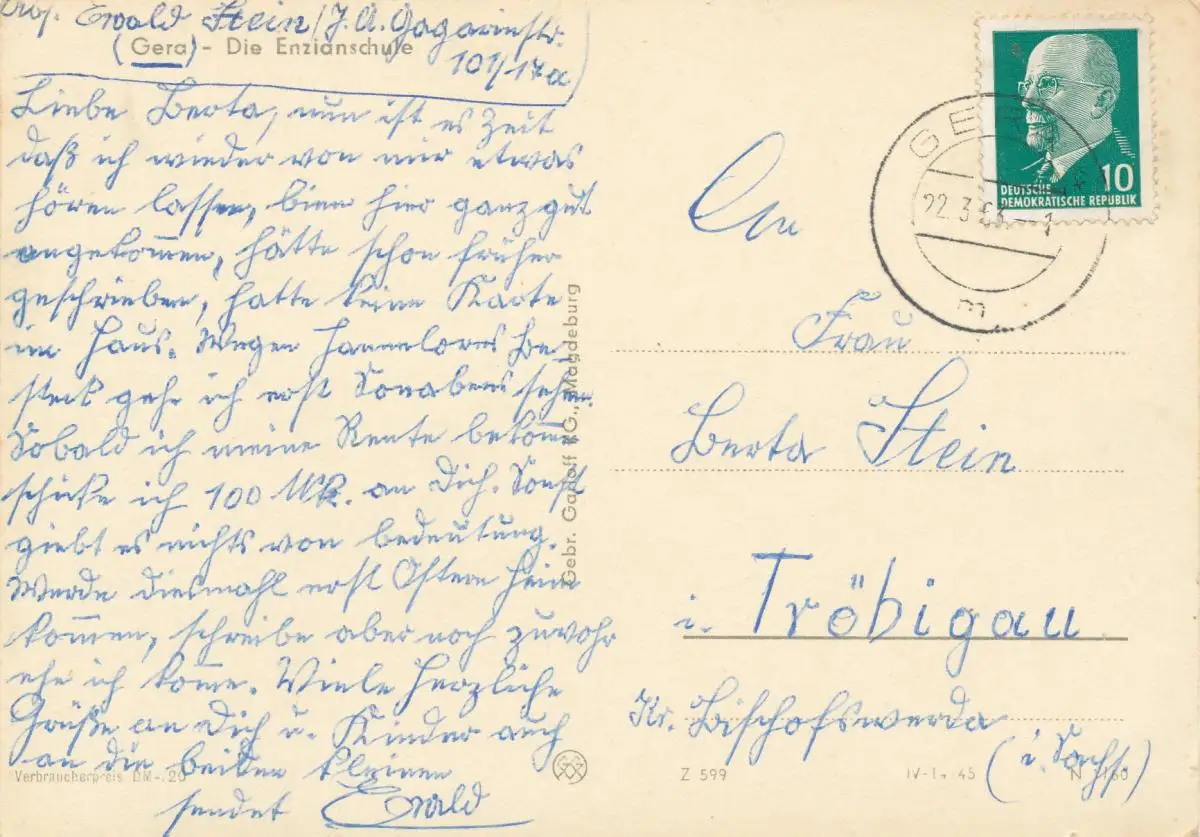 Ewald Stein / J. A. Gagarinstr.
101/17a
(Gera) - Die Enzianschule
Liebe Berta, nun ist es Zeit
daß ich wieder von mir etwas
hören lassen, binn hier ganz gut
angekommen, hätte schon früher
geschrieben, hatte keine Karte
im Haus. Wegen Hannelores Be-
steck gehe ich erst Sonabend sehen.
Sobald ich meine Rente bekome
schicke ich 100 Mk. an Dich. Sonst
giebt es nichts von bedeutung.
Werde diesmahl erst Ostern Heim
kommen, schreibe aber noch zuvohr
ehe ich komme. Viele Herzliche
Grüße an Dich u. Kinder auch
an die beiden kleinen
sendet Ewald
Verbraucherpreis DM -.20
Gebr. Garloff KG., Magdeburg
DEUTSCHE
DEMOKRATISCHE REPUBLIK
10
GERA
22.3.63 - 1
m
An
Frau
Berta Stein
i. Tröbigau
Kr. Bischofswerda
(i. Sachs.)
Z 599
IV-1- 45